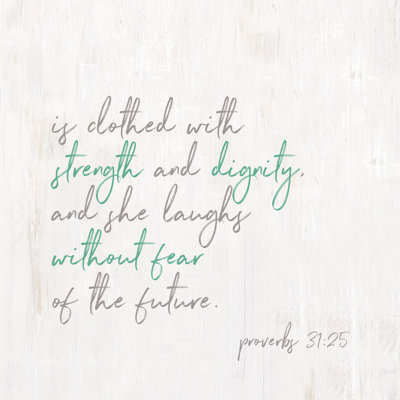 is clothed with
strength and dignity,
and she laughs
without fear
of the future.
proverbs 31:25